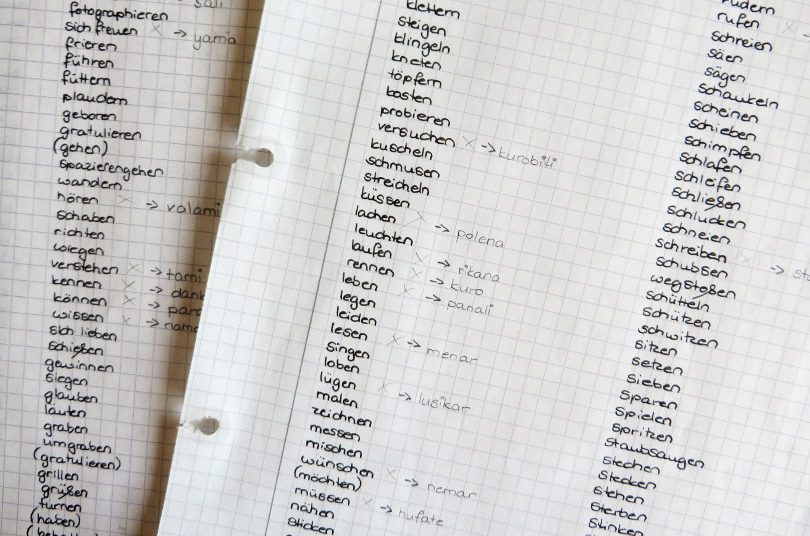 fotographieren
sich freuen X → yama
frieren
führen
füttern
plaudern
geboren
gratulieren
(gehen)
spazierengehen
wandern
hören X → valami
schaben
richten
wiegen
verstehen X → tami
kennen X →
können X →
wissen X →
sich lieben
schießen
gewinnen
siegen
glauben
läuten
graben
umgraben
(gratulieren)
grillen
grüßen
turnen
(haben)
klettern
steigen
klingeln
kneten
töpfern
kosten
probieren
versuchen X → kurobili
kuscheln
schmusen
streicheln
küssen
lachen X → polena
leuchten
laufen X → rikana
rennen X → kuro
leben X → panali
legen
leiden
lesen X → menar
singen
loben
lügen X → lusikar
malen
zeichnen
messen
mischen
wünschen X → nemar
(möchten)
müssen X → hufate
nähen
sticken
rudern
rufen X →
schreien
säen
sägen
schaukeln
scheinen
schieben
schimpfen
schlafen
schleifen
schließen
schlucken
schneien
schreiben X →
schubsen
wegstoßen
schütteln
schützen
schwitzen
sitzen
setzen
sieben
sparen
spielen
spritzen
staubsaugen
stechen
stecken
stehen
sterben
stinken